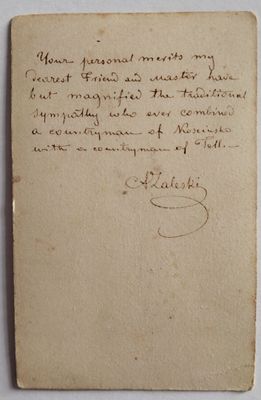 Your personal merits my
dearest Friend and Master have
but magnified the traditional
sympathy who ever combined
a countryman of Kosciusko
with a countryman of Tell.—
AZaleski